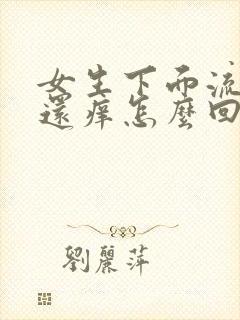 女生下面流
還痒怎麼回
劉麗萍